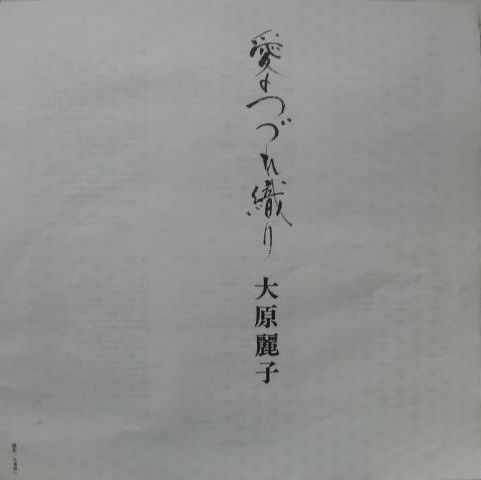 愛のつづれ織り
大原麗子